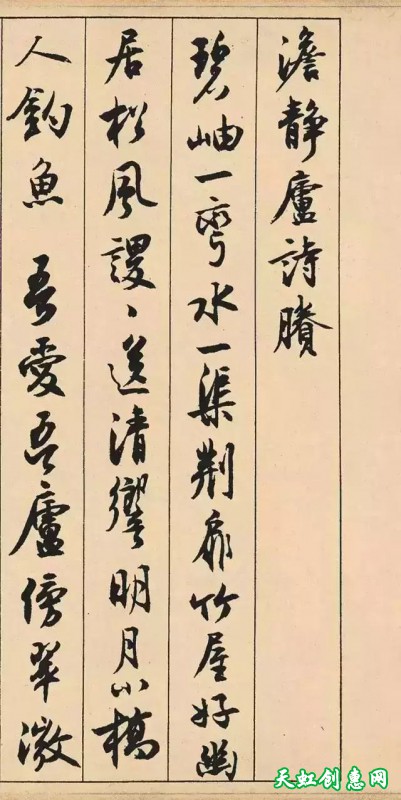 澹靜廬詩賸
碧岫一彎水一渠荆扉竹屋好幽
居松風謖、送清響明月小橋
人釣魚 吾愛吾廬傍翠微
天虹创惠网